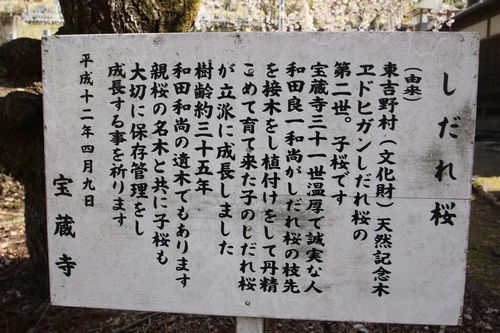 しだれ桜
(由来)
東吉野村(文化財)天然記念木
ヱドヒガンしだれ桜の
第二世。子桜です
宝蔵寺三十一世温厚で誠実な人
和田良一和尚がしだれ桜の枝先
を接木をし植付けをして丹精
こめて育て来た子のじだれ桜
が立派に成長しました
樹齢約三十五年
和田和尚の遺木でもあります
親桜の名木と共に子桜も
大切に保存管理をし
成長する事を祈ります
平成十二年四月九日
宝蔵寺